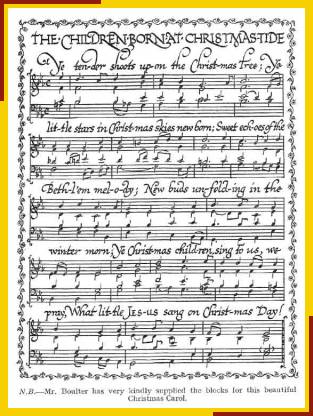 THE·CHILDREN·BORN·AT·CHRISTMAS·TIDE
Ye ten-der shoots up-on the Christ-mas Tree; Ye
lit-tle stars in Christ-mas skies new born; Sweet ech-oes of the
Beth-l'em mel-o-dy; New buds un-fold-ing in the
winter morn, Ye Christ-mas children, sing to us, we
pray, What lit-tle JES-US sang on Christ-mas Day!
N.B.—Mr. Boulter has very kindly supplied the blocks for this beautiful
Christmas Carol.